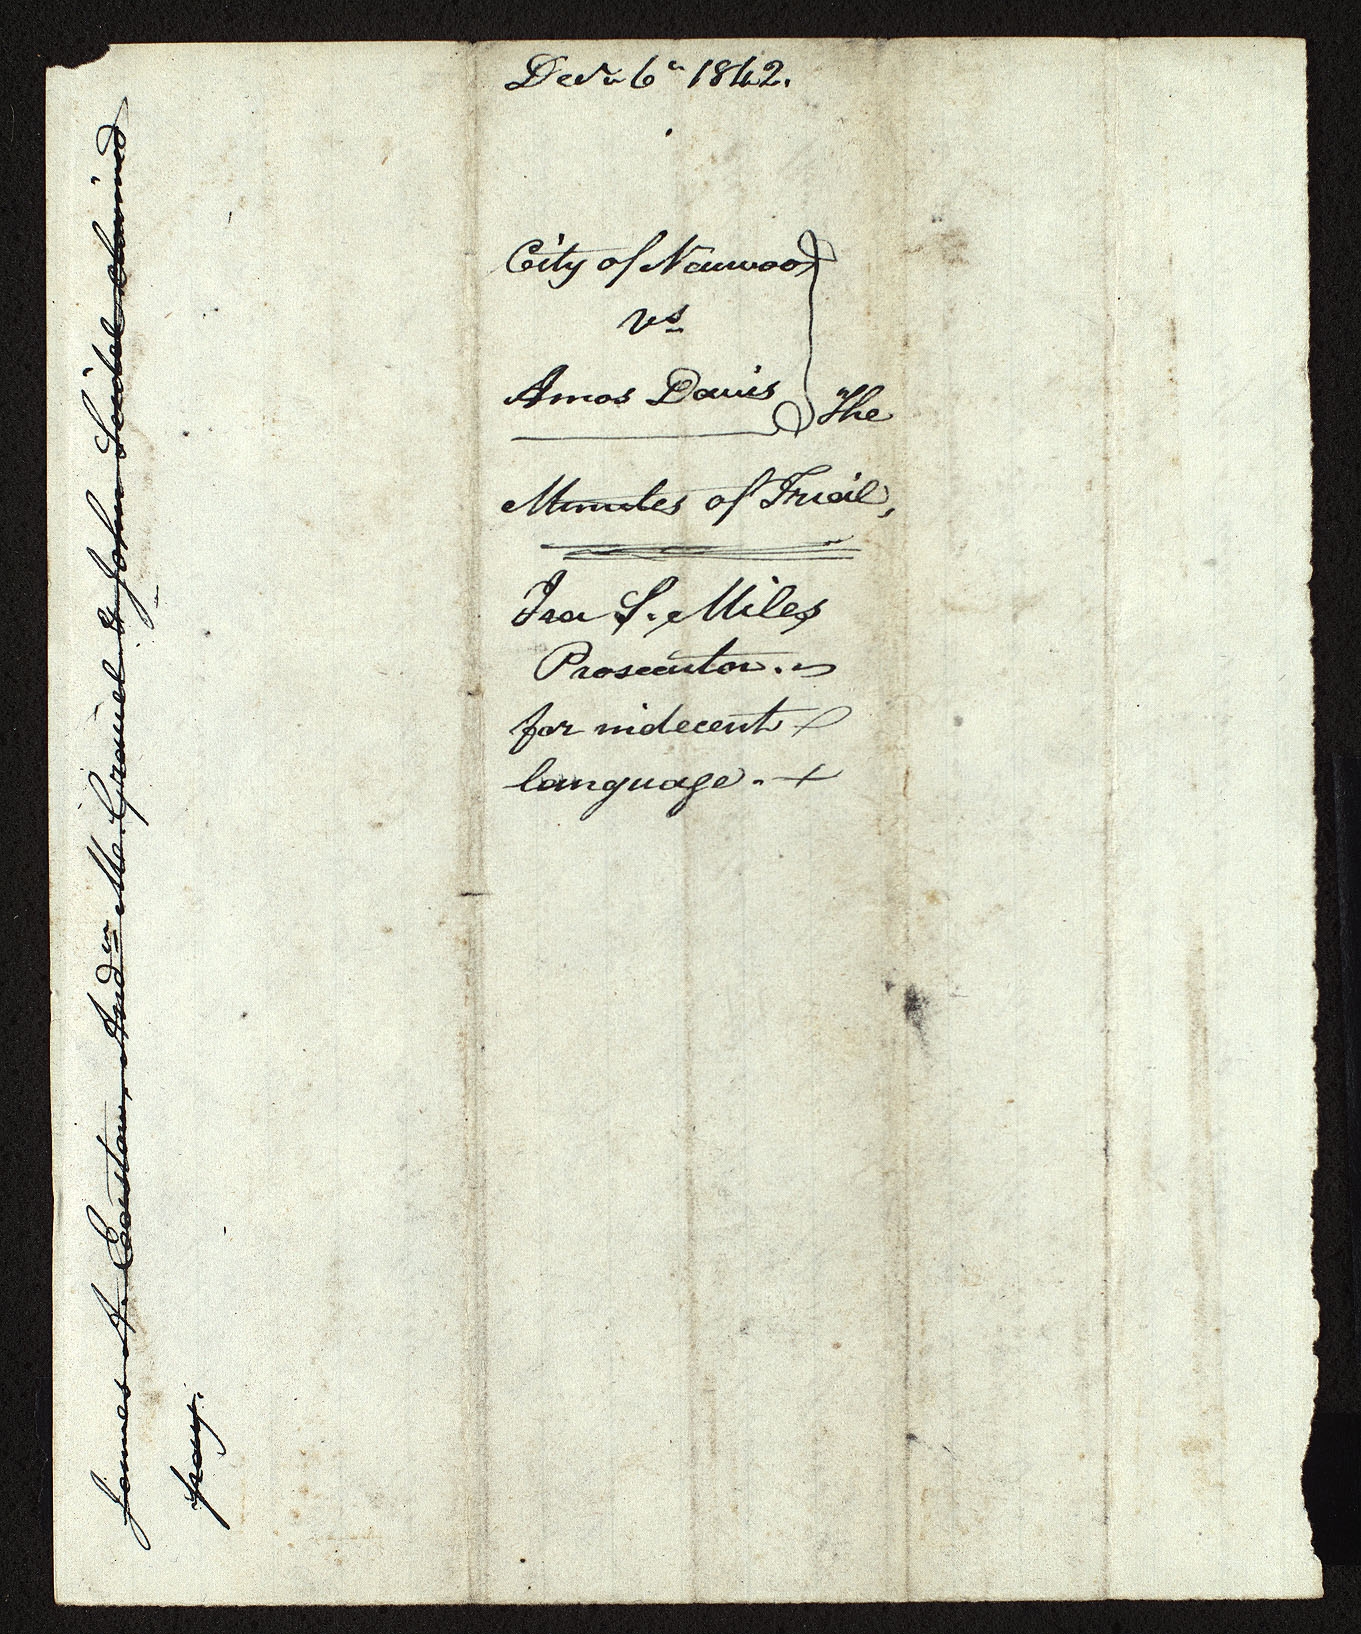 Decr 6th 1842.
City of Nauvoo
vs
Amos Davis
The
Minutes of Trial,
Ira S. Miles
Prosecutor.
for indecent
language. +
James A. Easton, And^w M. & John claimed
pay.